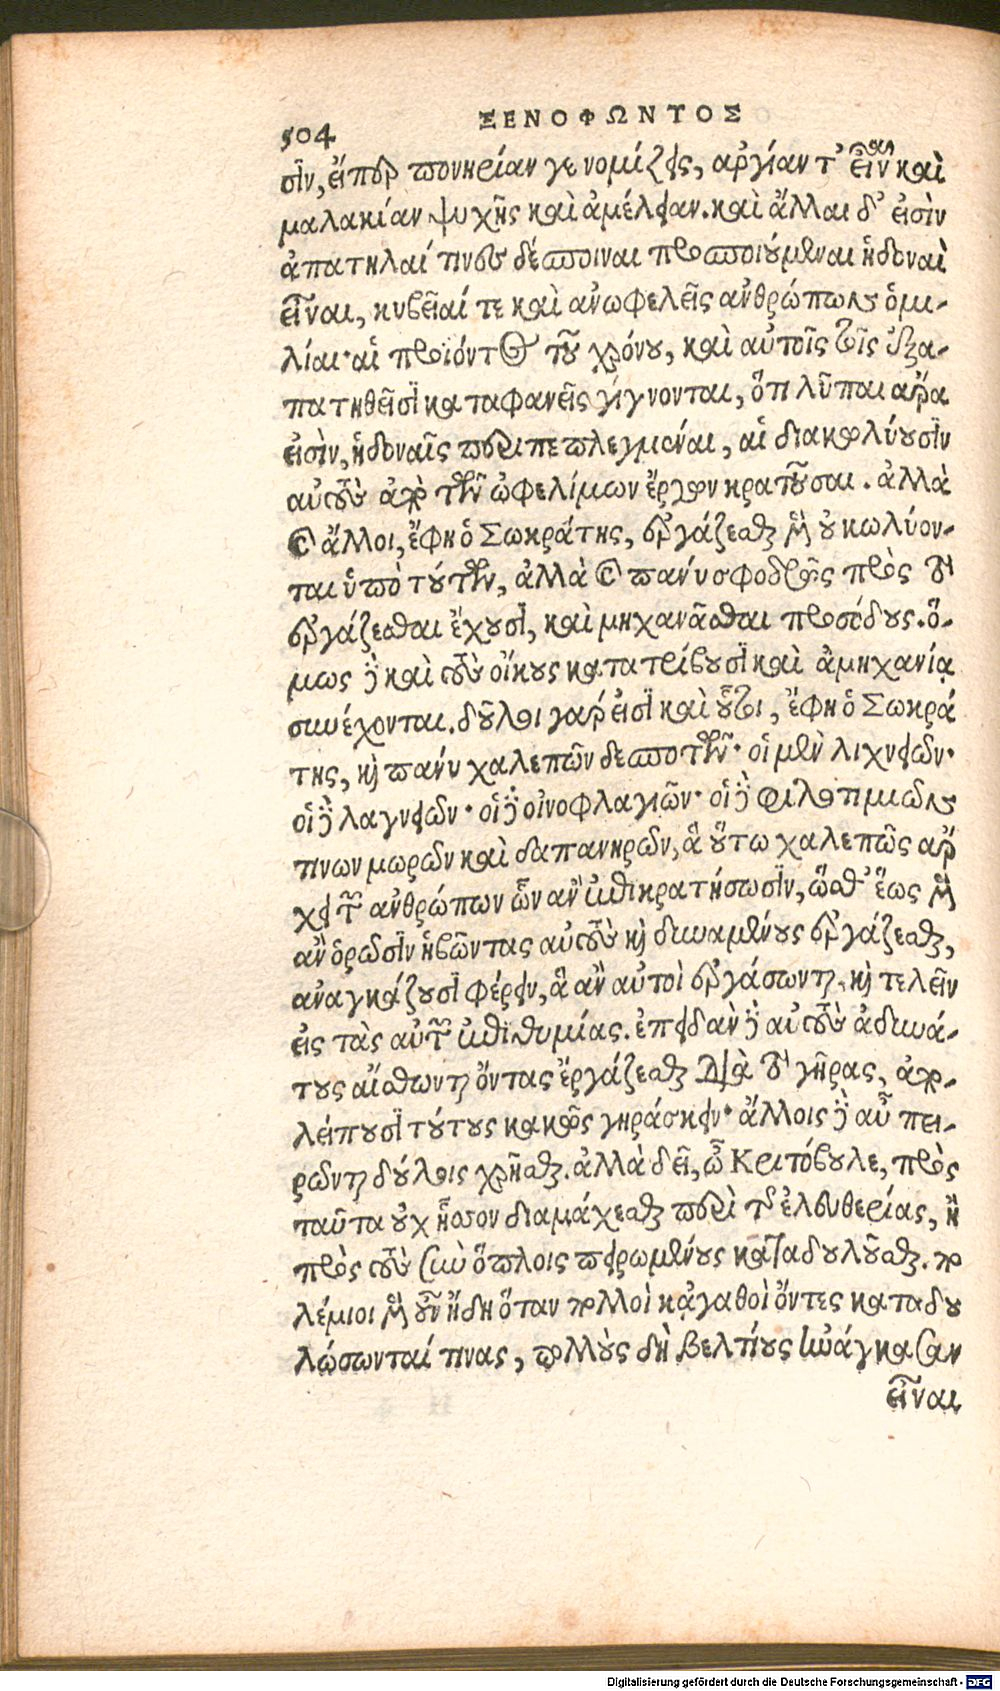 504
ΞΕΝΟΦΩΝΤΟΣ
σιν, εἴπερ πονηρίαν γε νομίζεις, ἀργίαν τ' εἶναι καὶ
μαλακίαν ψυχῆς καὶ ἀμέλειαν. καὶ ἄλλαι δ' εἰσὶν
ἀπατηλαί τινες δέσποιναι προσποιούμεναι ἡδοναὶ
εἶναι, κυβεῖαί τε καὶ ἀνωφελεῖς ἀνθρώπων ὁμι-
λίαι· αἳ προϊόντος τοῦ χρόνου, καὶ αὐτοῖς τοῖς ἐξα-
πατηθεῖσι καταφανεῖς γίγνονται, ὅτι λῦπαι ἄρα
εἰσὶν, ἡδοναῖς περιπεπλεγμέναι, αἳ διακωλύουσιν
αὐτοὺς ἀπὸ τῶν ὠφελίμων ἔργων κρατοῦσαι. ἀλλὰ
καὶ ἄλλοι, ἔφη ὁ Σωκράτης, ἐργάζεσθαι μὲν οὐ κωλύον-
ται ὑπὸ τούτων, ἀλλὰ καὶ πάνυ σφοδρῶς πρὸς τὸ
ἐργάζεσθαι ἔχουσι, καὶ μηχανᾶσθαι προσόδους. ὅ-
μως δὲ καὶ τοὺς οἴκους κατατρίβουσι καὶ ἀμηχανίᾳ
συνέχονται. δοῦλοι γάρ εἰσι καὶ οὗτοι, ἔφη ὁ Σωκρά
της, καὶ πάνυ χαλεπῶν δεσποτῶν· οἱ μὲν λιχνειῶν·
οἱ δὲ λαγνειῶν· οἱ δὲ οἰνοφλυγιῶν· οἱ δὲ φιλοτιμιῶν
τινων μωρῶν καὶ δαπανηρῶν, ἃ οὕτω χαλεπῶς ἄρ
χει τῶν ἀνθρώπων ὧν ἂν ἐπικρατήσωσιν, ὥσθ' ἕως μὲν
ἂν ὁρῶσιν ἡβῶντας αὐτοὺς καὶ δυναμένους ἐργάζεσθαι,
ἀναγκάζουσι φέρειν, ἃ ἂν αὐτοὶ ἐργάσωνται, καὶ τελεῖν
εἰς τὰς αὑτῶν ἐπιθυμίας. ἐπειδὰν δὲ αὐτοὺς ἀδυνά-
τους αἴσθωνται ὄντας ἐργάζεσθαι διὰ τὸ γῆρας, ἀπο-
λείπουσι τούτους κακῶς γηράσκειν· ἄλλοις δὲ αὖ πει-
ρῶνται δούλοις χρῆσθαι. ἀλλὰ δεῖ, ὦ Κριτόβουλε, πρὸς
ταῦτα οὐχ ἧσσον διαμάχεσθαι περὶ τῆς ἐλευθερίας, ἢ
πρὸς τοὺς σὺν ὅπλοις πειρωμένους καταδουλοῦσθαι. πο
λέμιοι μὲν οὖν ἤδη ὅταν πολλοὶ κἀγαθοὶ ὄντες καταδου
λώσωνταί τινας, πολλοὺς δὴ βελτίους ἠνάγκασαν
εἶναι
Digitalisierung gefördert durch die Deutsche Forschungsgemeinschaft - DFG